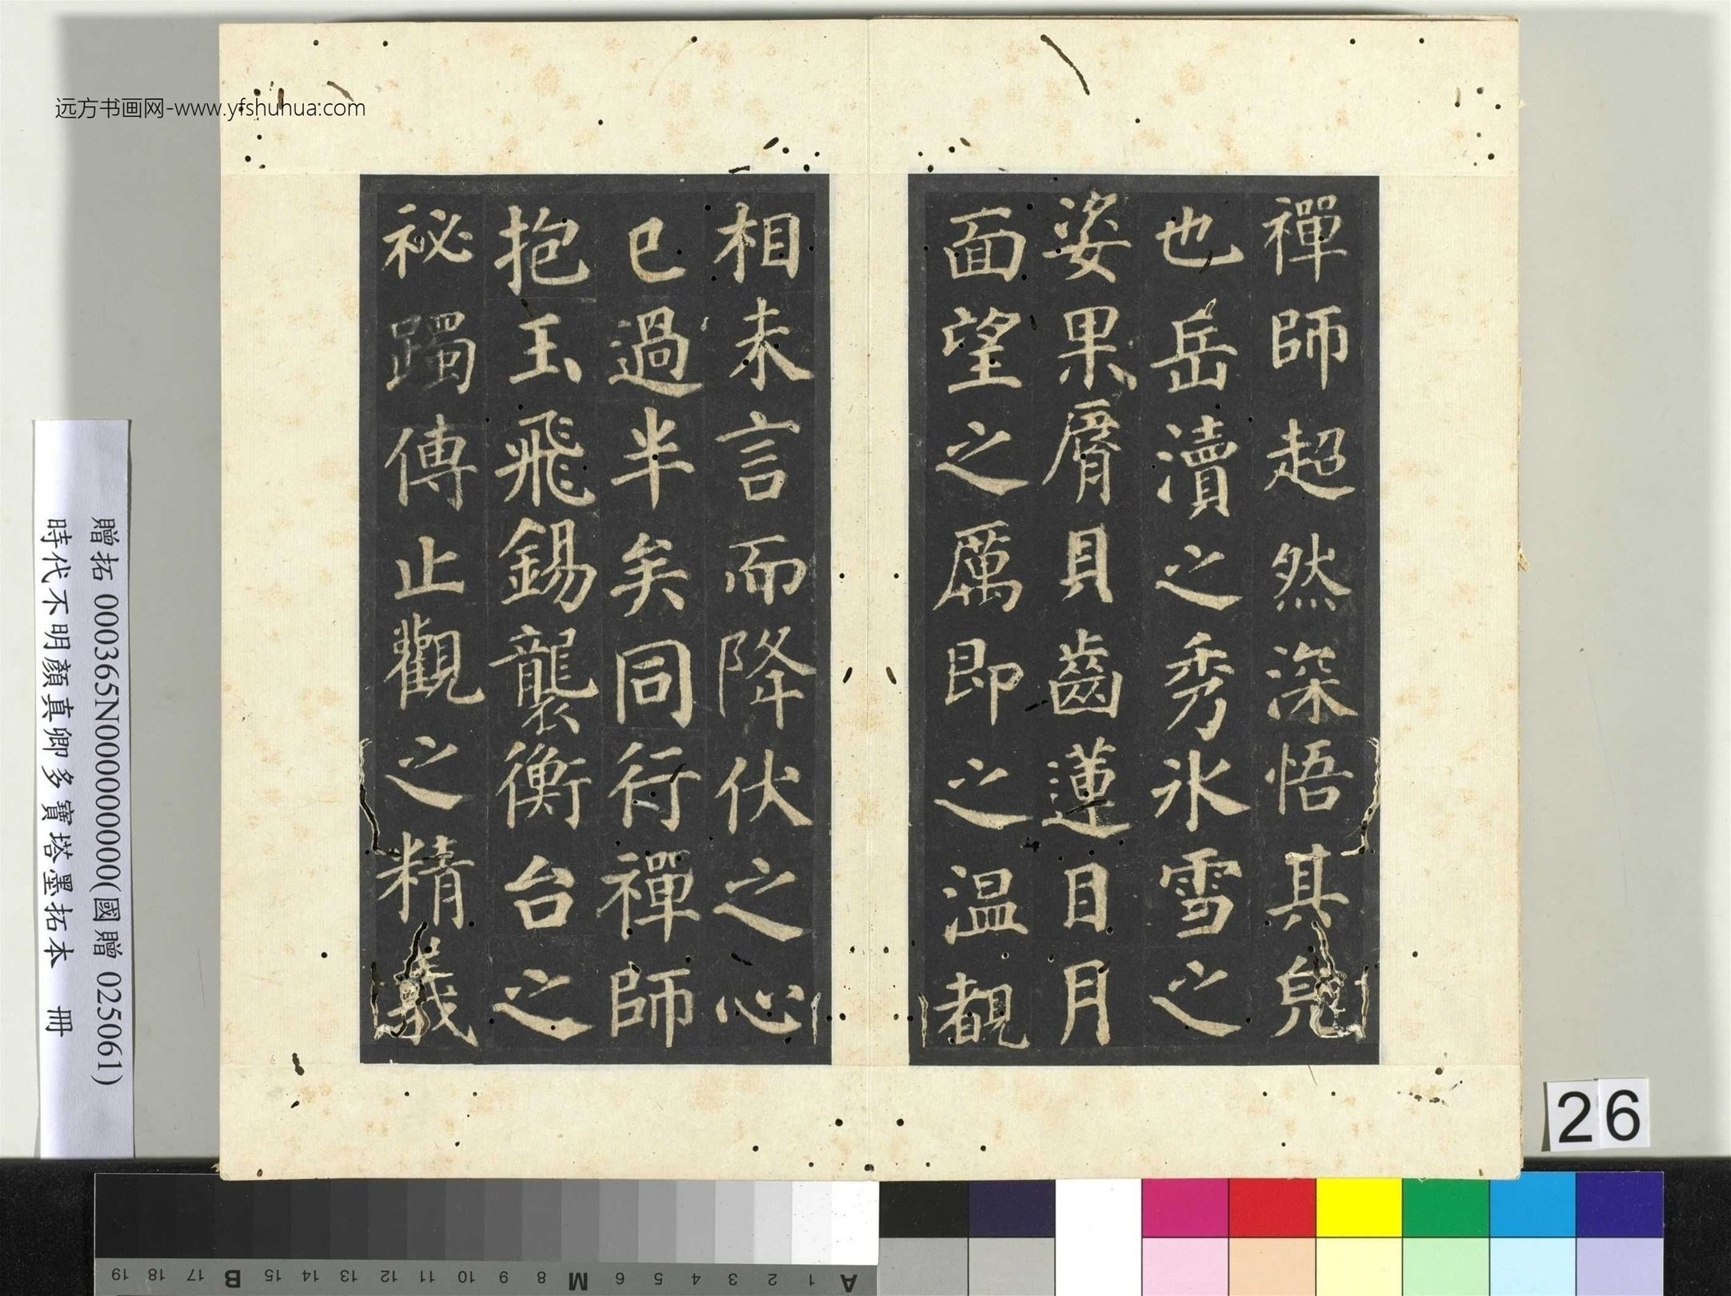 远方书画网-www.yfshuhua.com
禪師超然深悟其皃
也岳瀆之秀冰雪之
姿果脣貝齒蓮目月
面望之厲即之温覩
相未言而降伏之心
已過半矣同行禪師
抱玉飛錫襲衡台之
祕躅傳止觀之精義
贈拓 000365N000000000(國贈 025061)
時代不明顏真卿多寶塔墨拓本 冊
26
19 18 17 B 15 14 13 12 11 10 9 8 M 6 5 4 3 2 1 A